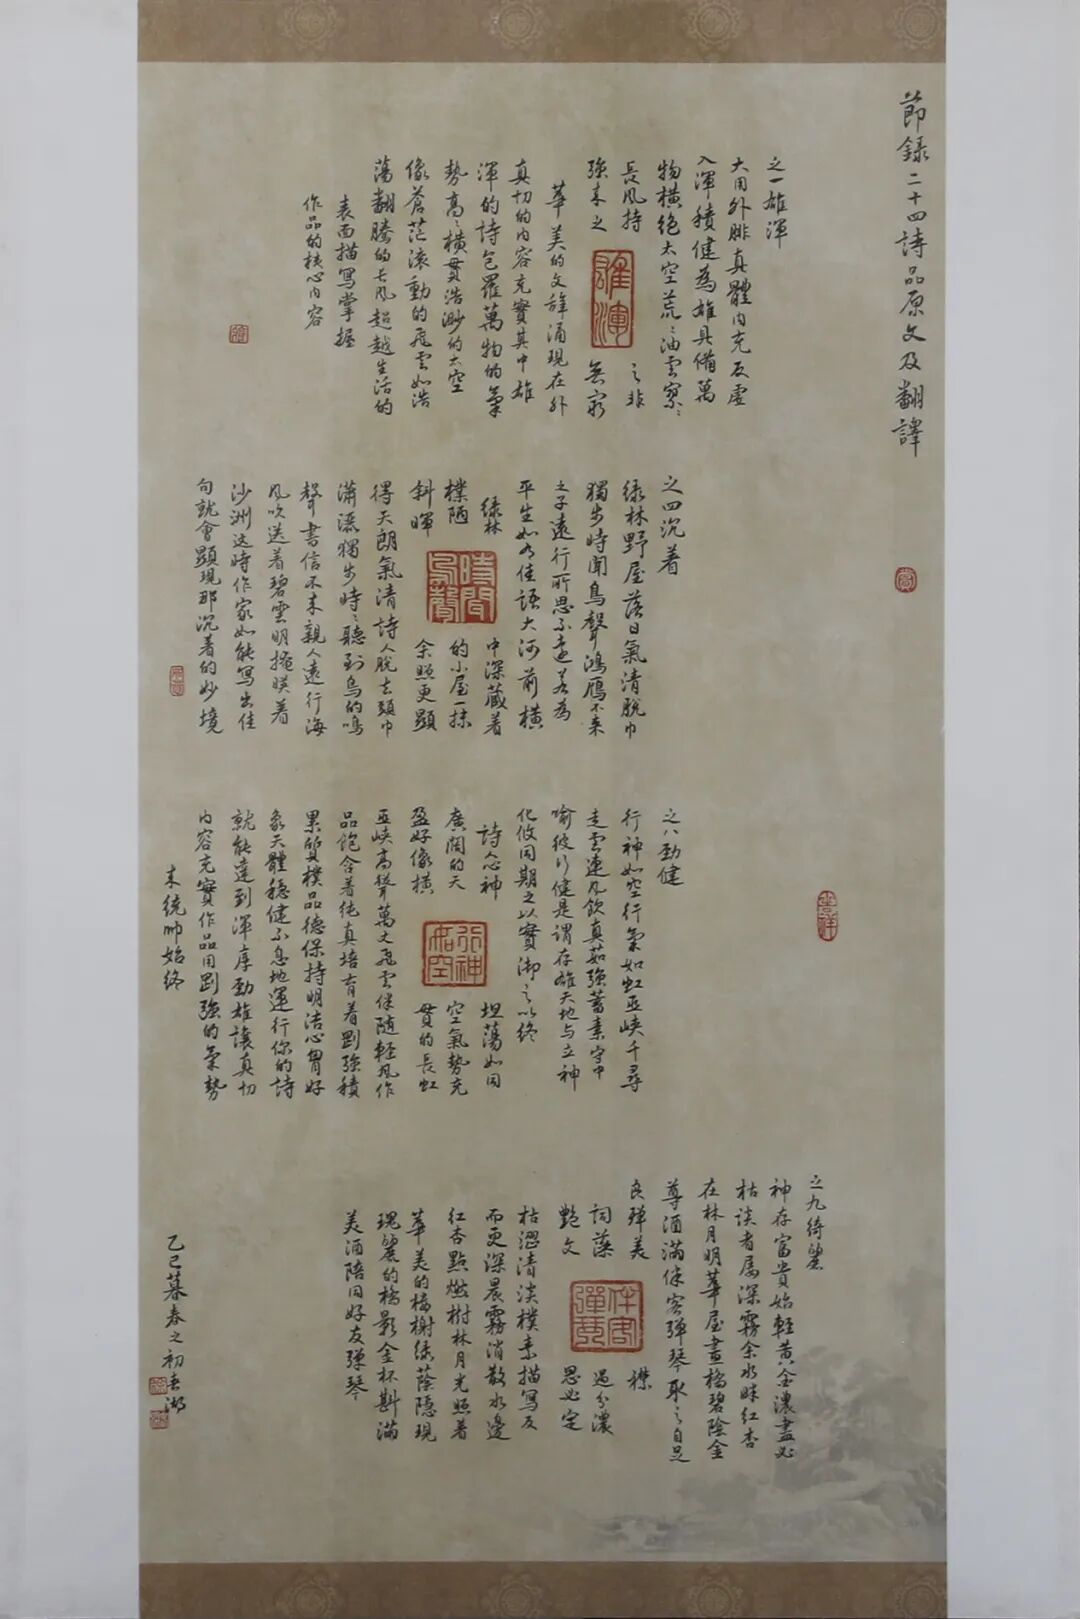 節録二十四詩品原文及翻譯
之一雄渾
大用外腓真體内充反虚
入渾積健為雄具備萬
物横絶太空荒〻油雲寥〻
長風持
之非
強来之
無窮
雄渾
華美的文辞涌現在外
真切的内容充實其中雄
渾的詩包羅萬物的氣
勢高〻横貫浩渺的太空
像蒼茫滚動的飛雲如浩
蕩翻騰的長風超越生活的
表面描寫掌握
作品的核心内容
之四沉着
緑林野屋落日氣清脱巾
獨步時聞鳥聲鴻雁不来
之子遠行所思不遠若為
平生如有佳語大河前横
緑林
中深藏着
樸陋
的小屋一抹
斜暉
余照更顯
時聞鳥聲
得天朗氣清詩人脱去頭巾
瀟灑獨步時〻聽到鸟的鳴
聲書信不来親人遠行海
風吹送着碧雲明掩映着
沙洲这時作家如能寫出佳
句就會顯現那沉着的妙境
之八勁健
行神如空行氣如虹巫峡千尋
走雲連風飲真茹強蓄素守中
喻彼行健是謂存雄天地与立神
化攸同期之以實御之以終
詩心神
坦蕩如同
廣闊的天
空氣勢充
盈好像横
貫的長虹
行神如空
巫峡高聳萬丈飛雲伴随輕風作
品飽含着純真培育着剛強積
累質樸品德保持明洁心胃好
象天體穩健不息地運行你的詩
就能達到渾厚勁雄讓真切
内容充實作品用剛強的氣勢
来統帅始终
之九綺麗
神存富貴始輕黄金濃盡必
枯淡者屡深霧余水畔红杏
在林月明華屋畫橋碧陰金
尊酒滿伴客弹琴取之自足
良殚美
襟
词藻
過分濃
艷文
思必定
伴客彈琴
枯澀清淡樸素描寫反
而更深晨霧消散水邊
红杏點燃樹林月光照着
華美的樓榭绿蔭隱現
瑰麗的橋影金杯斟滿
美酒陪同好友彈琴
乙巳暮春之初